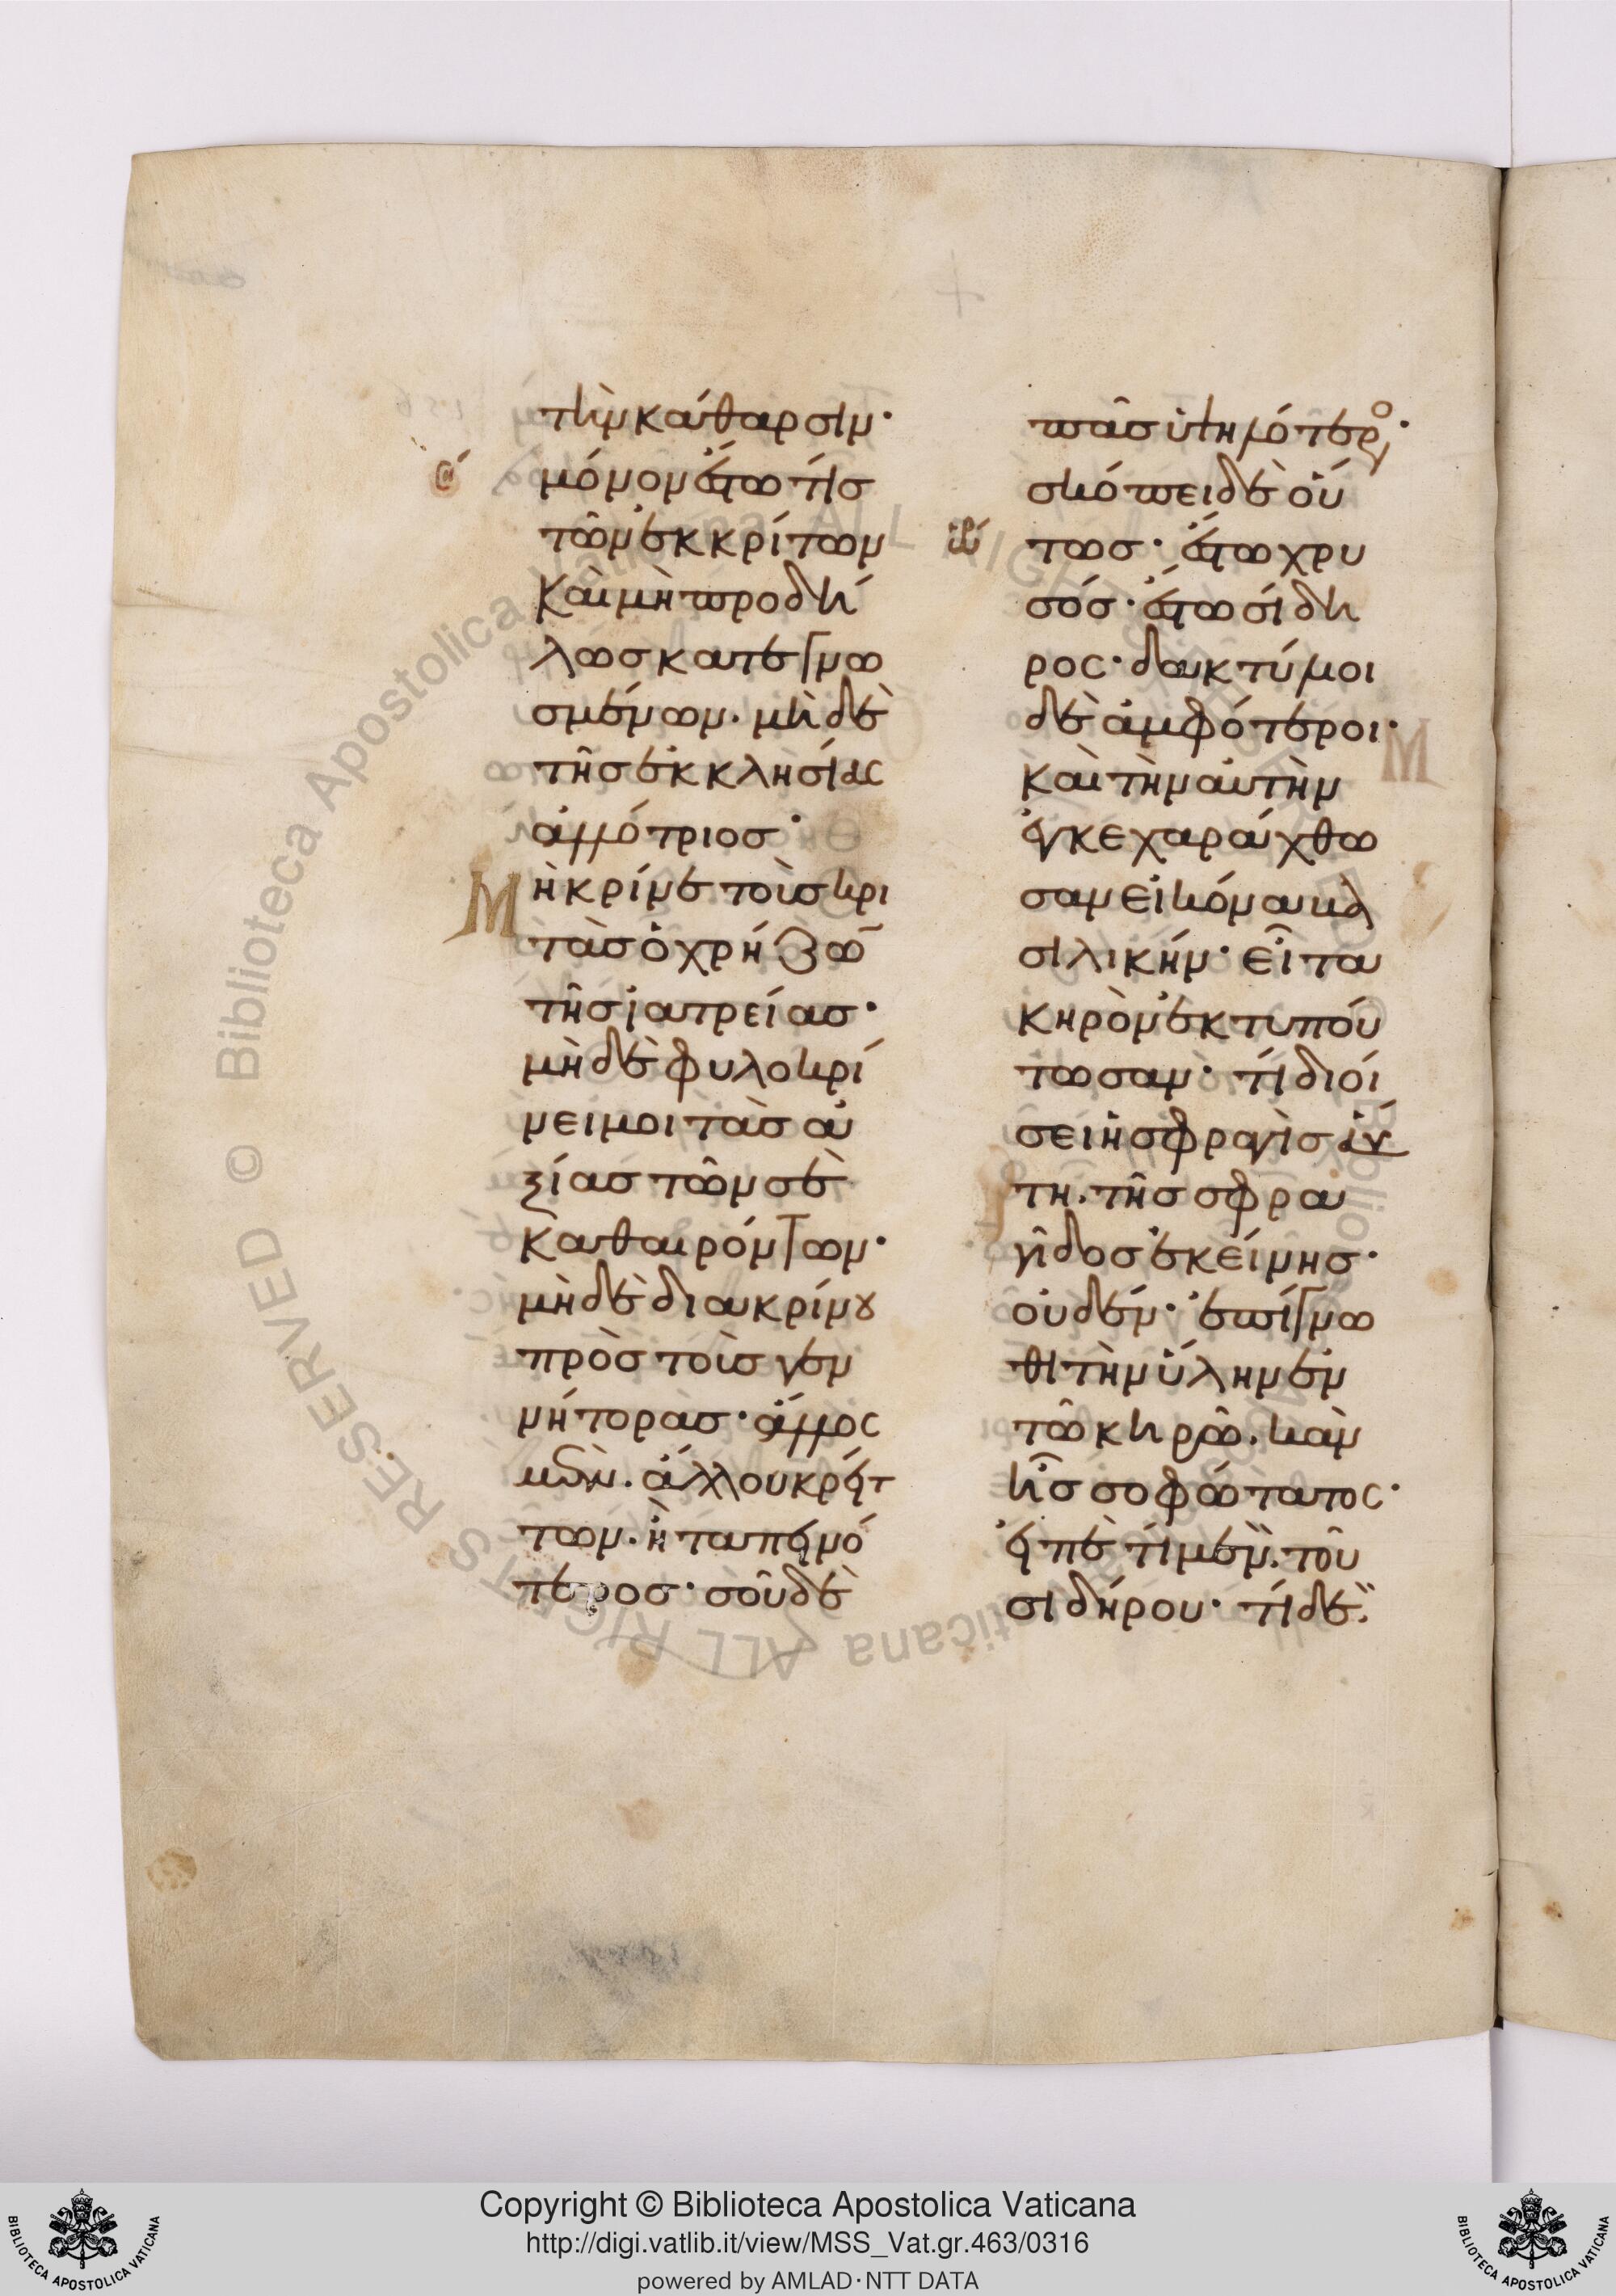 τὴν κάθαρσιν·
μόνον ἔστω τίς
τῶν ἐκκρίτων
καὶ μὴ προδή
λως κατεγνω
σμένων. μὴ δὲ
τῆς ἐκκλησίας
ἀλλότριος·
Μὴ κρίνε τοὺς κρι
τὰς ὁ χρήζων
τῆς ἰατρείας·
μὴ δὲ φυλοκρί
νει μοι τὰς ἀ
ξίας τῶν σὲ
καθαιρόντων·
μὴ δὲ διακρίνου
πρὸς τοὺς γεν
νήτορας· ἄλλος
μὲν. ἄλλου κρείτ
των. ἢ ταπεινό
τερος· σοῦ δὲ
πᾶς ὑψηλότερος·
σκόπει δὲ οὕ
τως· ἔστω χρυ
σός· ἔστω σίδη
ρος· δακτύλιοι
δὲ ἀμφότεροι·
καὶ τὴν αὐτὴν
ἐγκεχαράχθω
σαν εἰκόνα βα
σιλικήν· εἶτα
κηρὸν ἐκτυπού
τωσαν· τί διοί
σει ἡ σφραγὶς αὕ
τη. τῆς σφρα
γῖδος ἐκείνης·
οὐδέν· ἐπίγνω
θι τὴν ὕλην ἐν
τῶ κηρῶ. κἂν
ἦς σοφώτατος·
εἰπὲ τί μὲν. τοῦ
σιδήρου· τί δὲ.
Copyright © Biblioteca Apostolica Vaticana
http://digi.vatlib.it/view/MSS_Vat.gr.463/0316
powered by AMLAD·NTT DATA